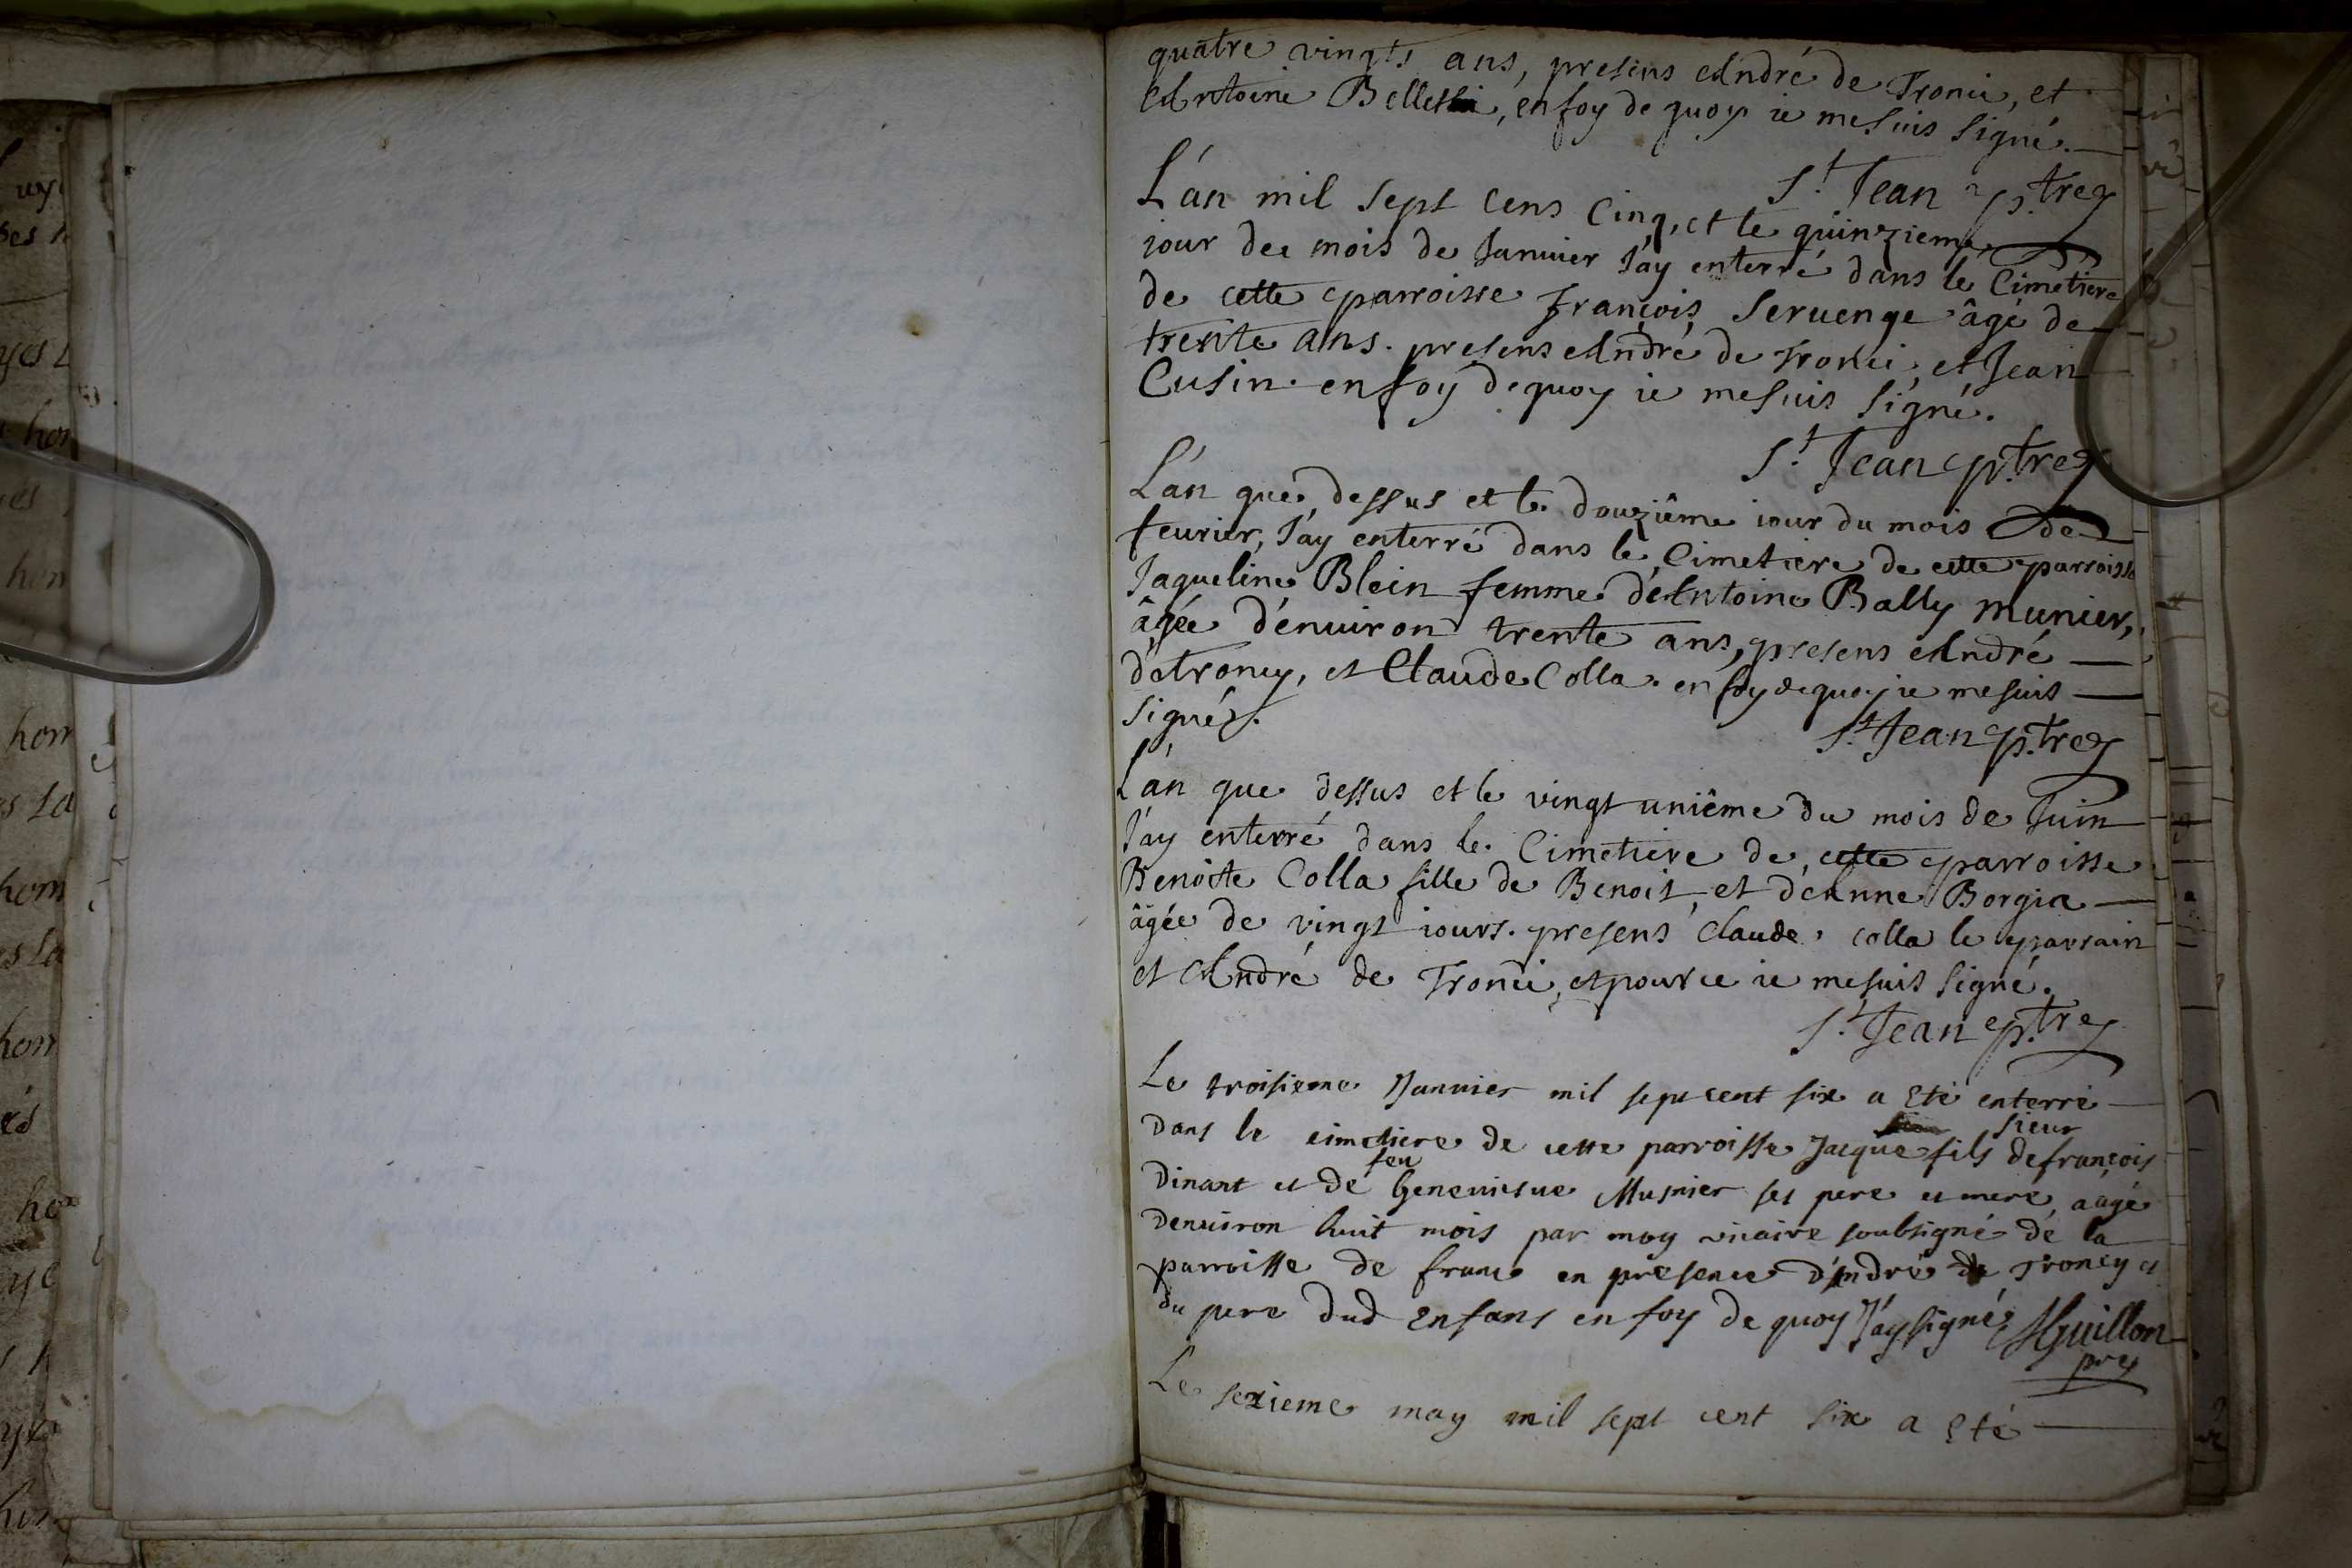 quatre vingts ans, presens André de Tronci, et
Antoine, en foy de quoy ie me suis signé.
St Jean ptre
L'an mil sept cens cinq, et le quinzieme
jour de mois de Januier J'ay enterré dans le Cimetiere
de cette parroisse François Seruenge âgé de
trente ans. presens André de Tronci, et Jean
Cusin. en foy de quoy ie me suis signé.
St Jean ptre
L'an que dessus et le douziême iour du mois de
feurier, J'ay enterré dans le Cimetiere de cette parroisse
Jaqueline Blein femme d'Antoine Bally munier,
âgée d'enuiron trente ans, presens André
de troncy, et Claude Colla. en foy de quoy ie me suis
signé.
St Jean ptre
L'an que dessus et le vingt uniême du mois de Juin
J'ay enterré dans le Cimetiere de cette parroisse
Benoite Colla fille de Benoit, et d'Anne Borgia
âgée de vingt iours. presens Claude colla le parrain
et André de Tronci, et pour ce ie me suis signé.
St Jean ptre
Le troisieme Januier mil sept cent six a Eté enterré
sieur
dans le cimetiere de cette parroisse Jacque fils de françois
feu
Dinant et de Geneuieue Musnier ses pere et mere, aagé
denuiron huit mois par moy vicaire soubsigné de la
parroisse de franc en presence d'André de Troncy et
du pere dud Enfans en foy de quoy J'ay signé Guillon
pre
Le sezieme may mil sept cent six a Eté